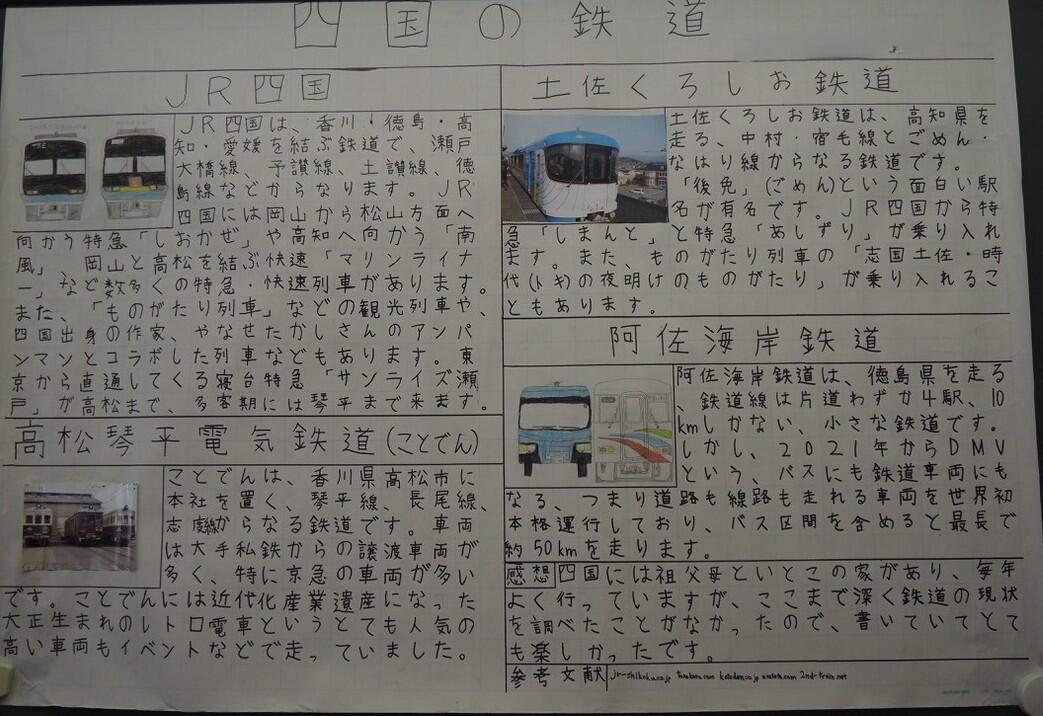 四国の鉄道
JR四国
JR四国は、香川・徳島・高
知・愛媛を結ぶ鉄道で、瀬戸
大橋線、予讃線、土讃線、徳
島線などからなります。JR
四国には岡山から松山方面へ
向かう特急「しおかぜ」や高知へ向かう「南
風」、岡山と高松を結ぶ快速「マリンライナ
ー」など数多くの特急・快速列車があります。
また、「ものがたり列車」などの観光列車や、
四国出身の作家、やなせたかしさんのアンパ
ンマンとコラボした列車などもあります。東
京から直通してくる寝台特急「サンライズ瀬
戸」が高松まで、多客期には琴平まで来ます。
高松琴平電気鉄道(ことでん)
ことでんは、香川県高松市に
本社を置く、琴平線、長尾線、
志度線からなる鉄道です。車両
は大手私鉄からの譲渡車両が
多く、特に京急の車両が多い
です。ことでんには近代化産業遺産になった
大正生まれのレトロ電車というとても人気の
高い車両もイベントなどで走っていました。
土佐くろしお鉄道
土佐くろしお鉄道は、高知県を
走る、中村・宿毛線とごめん・
なはり線からなる鉄道です。
「後免」(ごめん)という面白い駅
名が有名です。JR四国から特
急「しまんと」と特急「あしずり」が乗り入れ
ます。また、ものがたり列車の「志国土佐・時
代(トキ)の夜明けのものがたり」が乗り入れるこ
ともあります。
阿佐海岸鉄道
阿佐海岸鉄道は、徳島県を走る
、鉄道線は片道わずか4駅、10
kmしかない、小さな鉄道です。
しかし、2021年からDMV
という、バスにも鉄道車両にも
なる、つまり道路も線路も走れる車両を世界初
本格運行しており、バス区間を含めると最長で
約50kmを走ります。
感想 四国には祖父母といとこの家があり、毎年
よく行っていますが、ここまで深く鉄道の現状
を調べたことがなかったので、書いていてとて
も楽しかったです。
参考文献 jr-shikoku.co.jp kotoden.co.jp 2nd-train.net